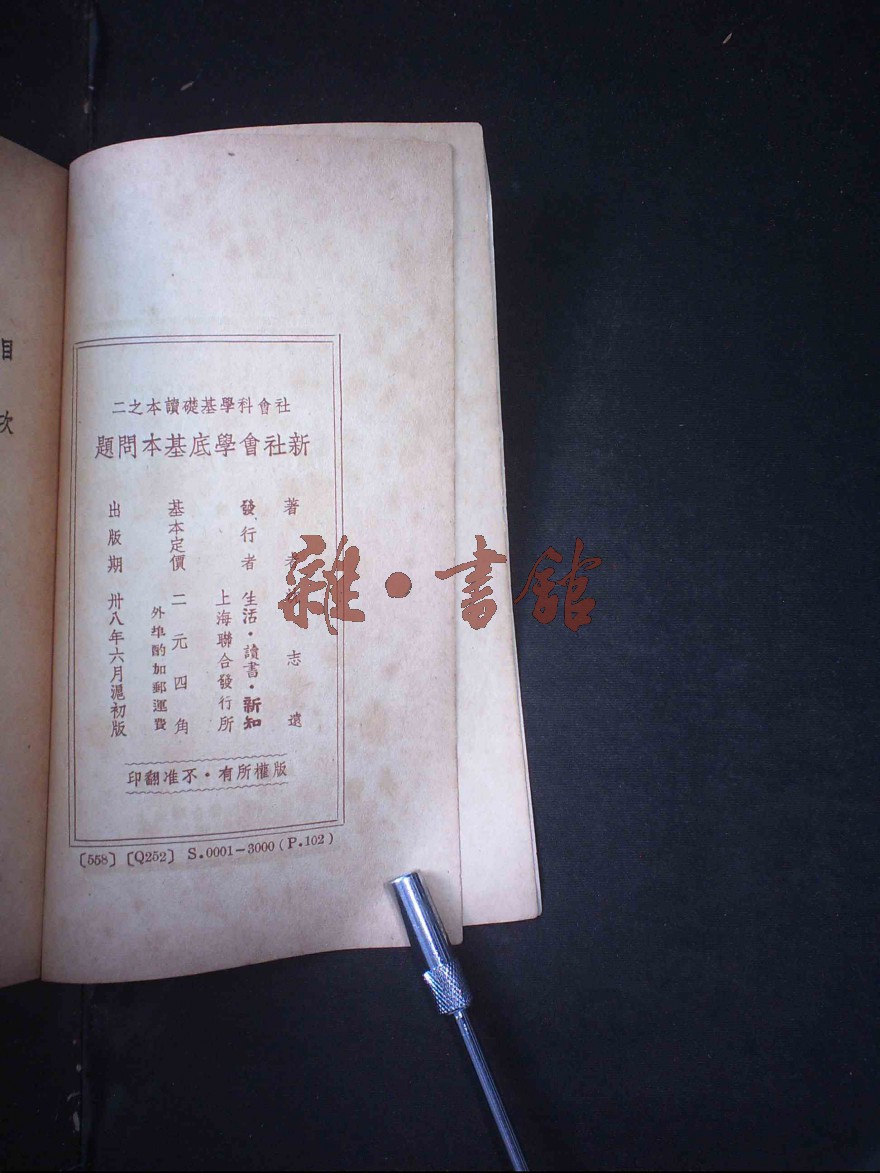 目次
社會科學基礎讀本之二
新社會學底基本問題
著者 志遠
發行者 生活·讀書·新知
上海聯合發行所
基本定價 二元四角
外埠酌加郵運費
出版期 卅八年六月滬初版
版權所有·不准翻印
〔558〕〔Q252〕 S.0001—3000(P.102)
雜·書館